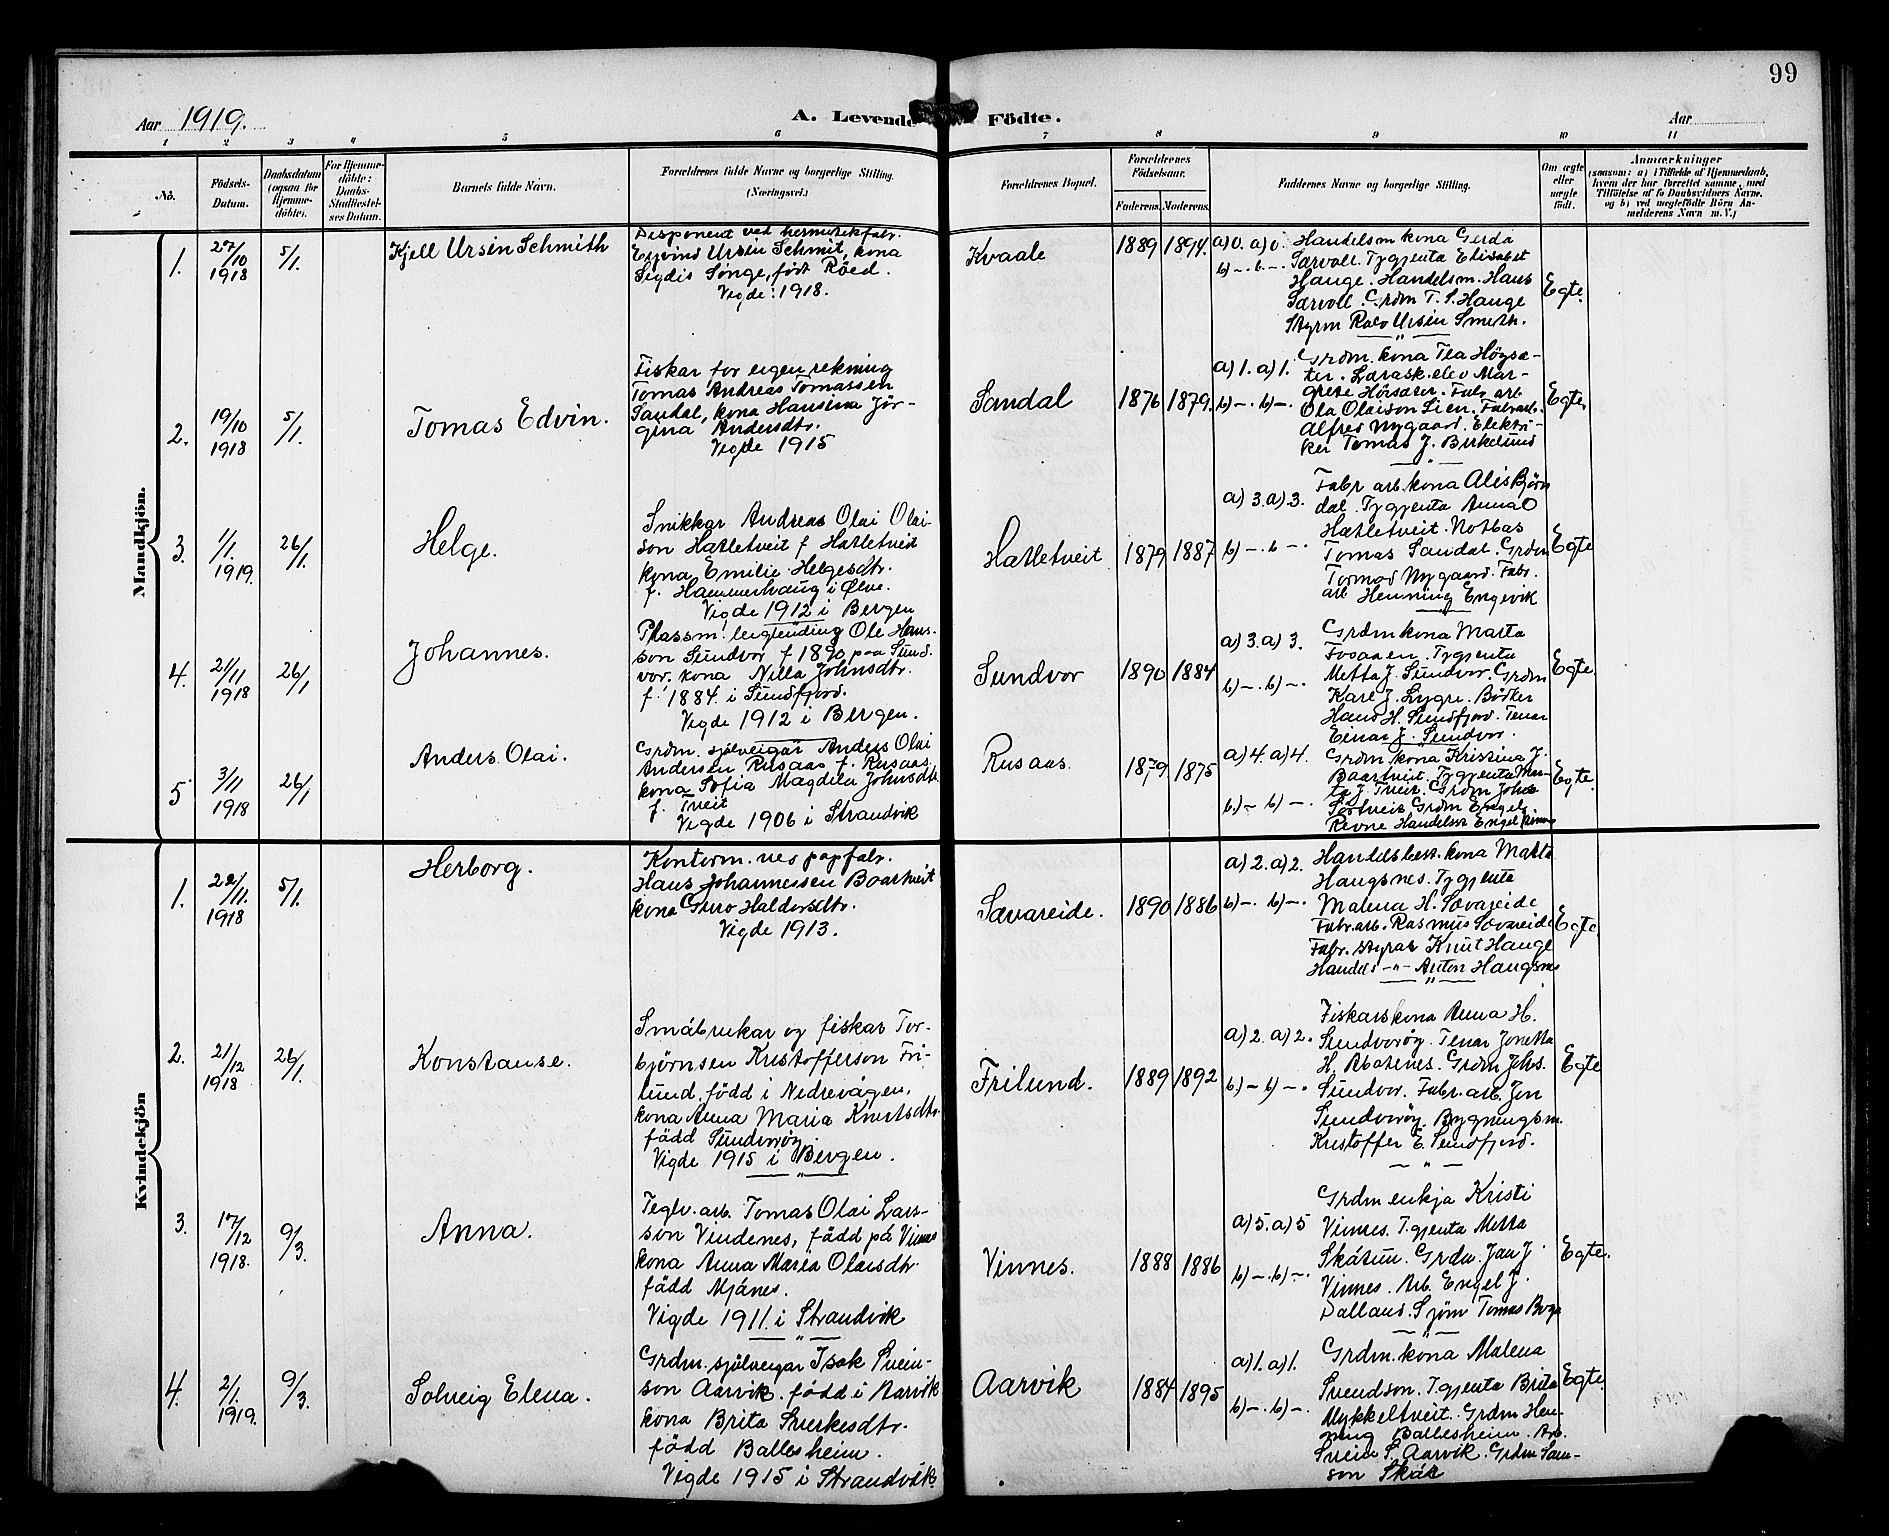 99
Aar 1919.
A. Levende Födte.
Aar
1 2 3 4 5 6 7 8 9 10 11
No.
Födsels-Datum.
Daabsdatum (ogsaa for Hjemme-döbte).
For Hjemme-döbte: Daabs-Stadfæstelses Datum.
Barnets fulde Navn.
Forældrenes fulde Navne og borgerlige Stilling. (Næringsvei.)
Forældrenes Bopæl.
Forældrenes Födselsaar.
Faderens. Moderens.
Faddernes Navne og borgerlige Stilling.
Om ægte eller uægte födt.
Anmærkninger
(saasom: a) i Tilfælde af Hjemmedaab, hvem der har forrettet samme, med Tilföielse af to Daabsvidners Navne, og b) ved uægtefödte Börn Anmelderens Navn m. V.)
Mandkjön.
1. 27/10 1918 5/1. Kjell Ursin Schmith
Disponent ved hermetikfabr.
Eijvind Ursin Schmit, kona
Sigdis Songe, født Röed.
Vigde: 1918.
Kvaale 1889 1894. a) 0. a) 0.
b) — . b. — .
Handelsm kona Gerda
Særvoll. Tygjenta Elisabet
Hauge. Handelsm. Hans
Særvoll. Grdm T. S. Hauge
Styrm Ralv Ursin Smith.
Egte.
2. 19/10 1918 5/1. Tomas Edvin.
Fiskar for eigen rekning
Tomas Andreas Tomassen
Sandal, kona Hansina Jör-
gina Andersdtr.
Vigde 1915
Sandal 1876 1879. a) 1. a) 1.
b) — . b) — .
Grdm. kona Tea Högsæ-
ter. Lærask. elev Mar-
grete Högsæter. Fabr arb
Ola Olaison Lien. Fabrarb.
Alfred Nygaard. Elektri-
ker Tomas J. Birkelund
Egte.
3. 1/1. 1919. 26/1. Helge.
Snikkar Andreas Olai Olai-
son Hatletveit f. Hatletveit
kona Emilie Helgesdtr.
f. Hammerhaug i Ølve.
Vigde 1912 i Bergen
Hatletveit 1879 1887 a) 3. a) 3.
b) — . b — .
Fabr arb. kona Alis Bjørn
dal. Tygjenta Anna O
Hatletveit. Notbas
Tomas Sandal. Grdm
Tormod Nygaard. Fabr.
arb Henning Engevik
Egte
4. 21/11 1918 26/1 Johannes.
Plassm. leiglending Ole Hans-
son Sundvor f 1890 paa Sund-
vor. kona Nilla Johnsdtr.
f. 1884 i Sundfjord.
Vigde 1912 i Bergen.
Sundvor 1890 1884 a) 3. a) 3.
b) — . b) — .
Grdm kona Marta
Fosaaen. Tygjenta
Metta J. Sundvor. Grdm
Karl J. Lygre. Bödker
Hans H. Sundfjord. Tenar
Einar J. Sundvor.
Egte.
5 3/11 1918 26/1 Anders Olai.
Grdm. sjölveigar Anders Olai
Andersen Rusaas f. Rusaas.
kona Sofia Magdela Johnsdtr
f. Tveit
Vigde 1906 i Strandvik
Rusaas. 1879. 1875 a) 4. a) 4.
b.) — b) — .
Grdm kona Kristina J.
Baartveit. Tygjenta Mar-
ta J. Tveit. Grdm Johs
Grdm Engel
Revne Handelsst Engel
Egte.
Kvindekjön
1. 22/11. 1918 5/1. Herborg.
Kontorm. nes papfabr.
Hans Johannessen Baartveit
kona Guro Haldorsdtr.
Vigde 1913.
Sævareide. 1890 1886 a) 2. a) 2.
b) — . b) — .
Handelsbest. kona Marta
Haugsnes. Tygjenta
Malena H. Sævareide
Fabr. arb. Rasmus Sævareide
Fabr. styrar Knut Hauge
Handels — " — Anton Haugsnes
Egte.
2. 21/12 1918 26/1. Konstanse.
Småbrukar og fiskar Tor-
bjørnsen Kristofferson Fri-
lund, född i Nedrevågen,
kona Anna Maria Knutsdtr.
född Sundvorøy.
Vigde 1915 i Bergen.
Frilund. 1889 1892 a) 2. a) 2.
b.) — b) — .
Fiskarskona Anna H.
Sundvorøy. Tenar Jonetta
H. Abatenes. Grdm Johs.
Sundvor. Fabr. arb. Jon
Sundvorøy. Bygningsm.
Kristoffer E. Sundfjord.
Egte
3. 17/12 1918. 9/3. Anna.
Teglv. arb. Tomas Olai Lars-
son Vindenes, född på Vinnes
kona Anna Maria Olaisdtr.
född Mjånes.
Vigde 1911. i Strandvik
Vinnes. 1888 1886 a) 5. a) 5
b) — . b) — .
Grdm enkja Kristi
Vinnes. Tgjenta Metta
Skåtun. Grdm. Jan J.
Vinnes. Arb. Engel J.
Dalland. Sjöm Tomas
Egte.
4. 2/1. 1919. 9/3. Solveig Elena.
Grdm. sjölveigar Isak Svein-
son Aarvik. född i Aarvik
kona Brita Sverkesdtr.
född Ballesheim.
Vigde 1915 i Strandvik.
Aarvik 1884 1895 a) 1. a) 1.
b) — . b) — .
Grdm. kona Malena
Svendson. Tgjenta Brita
Mykkeltveit. Grdm Hen-
ning Ballesheim. Arb.
Svein S. Aarvik. Grdm Sam-
son Skår
Egte.